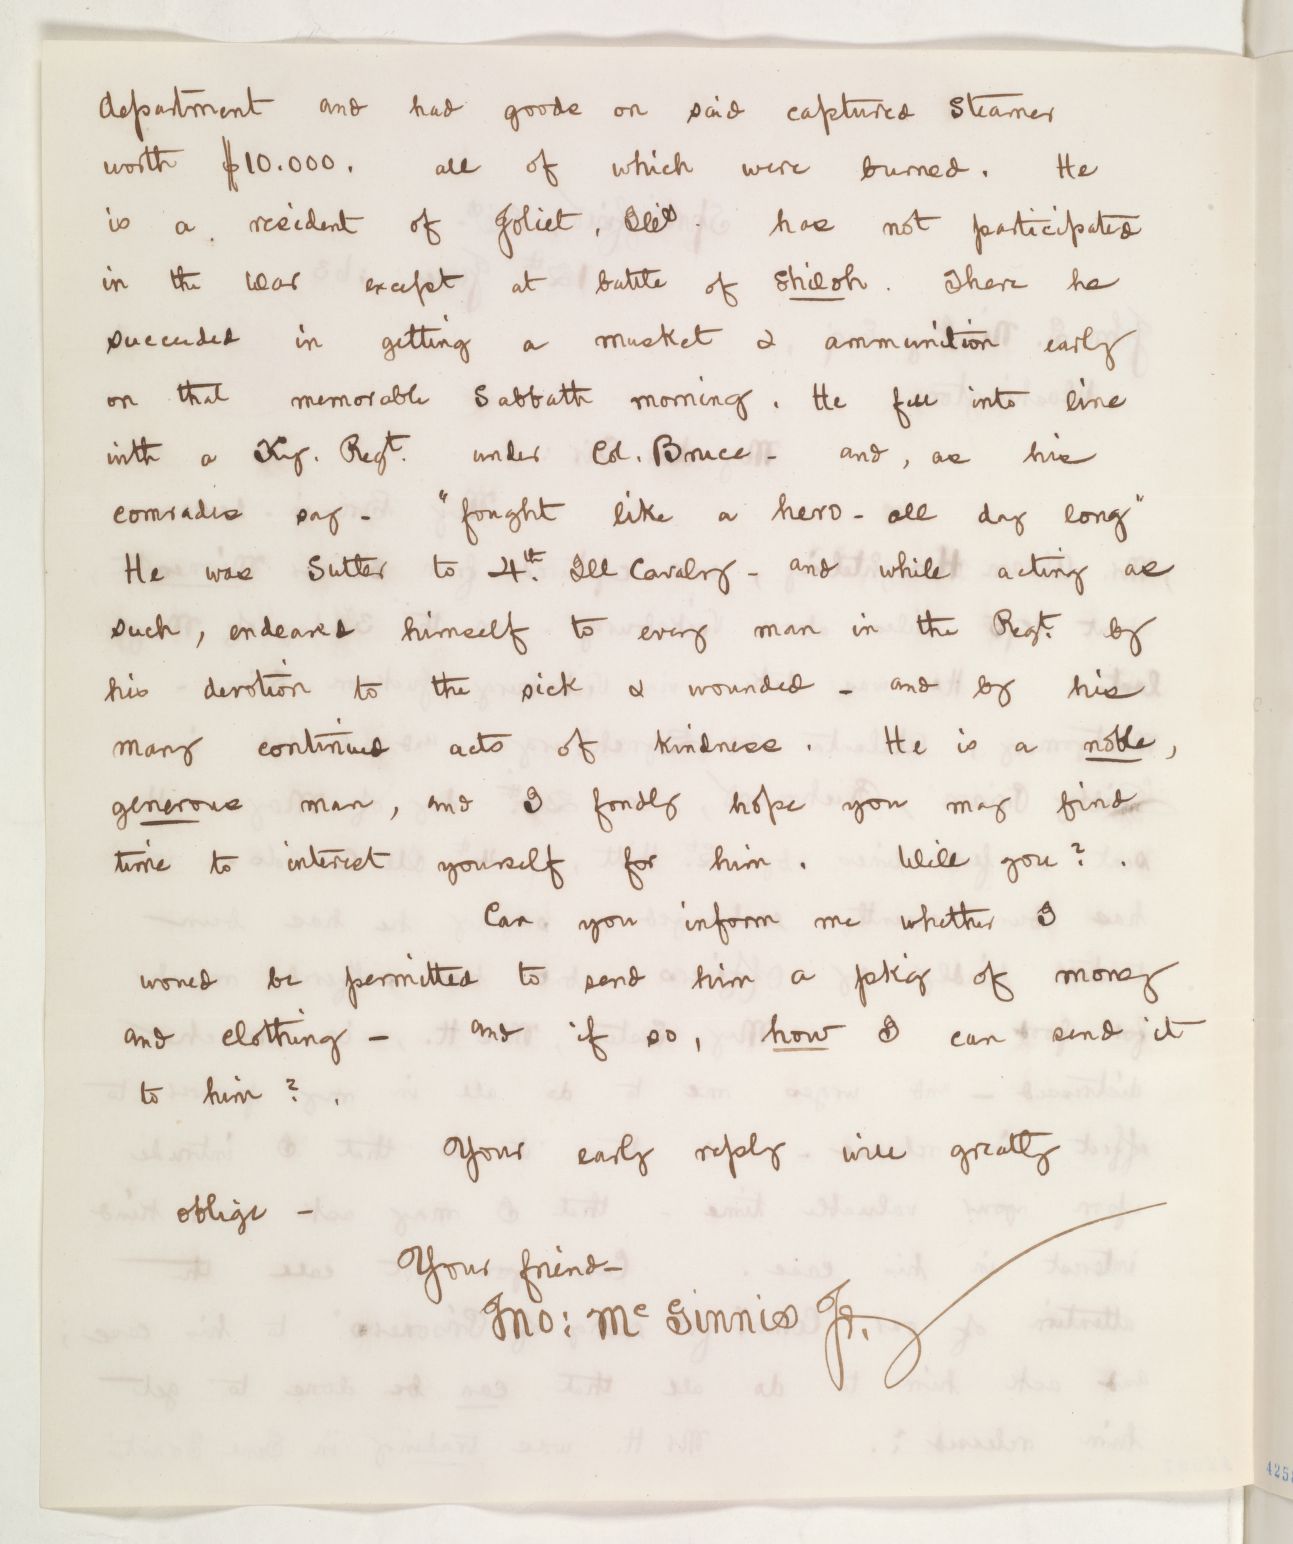 department and had goods on said captured Steamer
worth $10.000. all of which were burned. He
is a resident of Joliet, Ills. has not participated
in the War except at battle of Shiloh. There he
succeeded in getting a musket & ammunition early
on that memorable Sabbath morning. He fell into line
with a Ky. Regt. under Col. Bruce - and, as his
comrades say - "fought like a hero - all day long"
He was Sutler to 4th. Ill Cavalry - and while acting as
such, endeared himself to every man in the Regt. by
his devotion to the sick & wounded - and by his
many continued acts of kindness. He is a noble,
generous man, and I fondly hope you may find
time to interest yourself for him. Will you?.
Can you inform me whether I
would be permitted to send him a pkg of money
and clothing - and if so, how I can send it
to him?.
Your early reply will greatly
oblige -
Your friend -
Jno: McGinnis Jr.